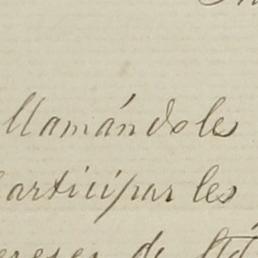 llamándoles
participarles
de